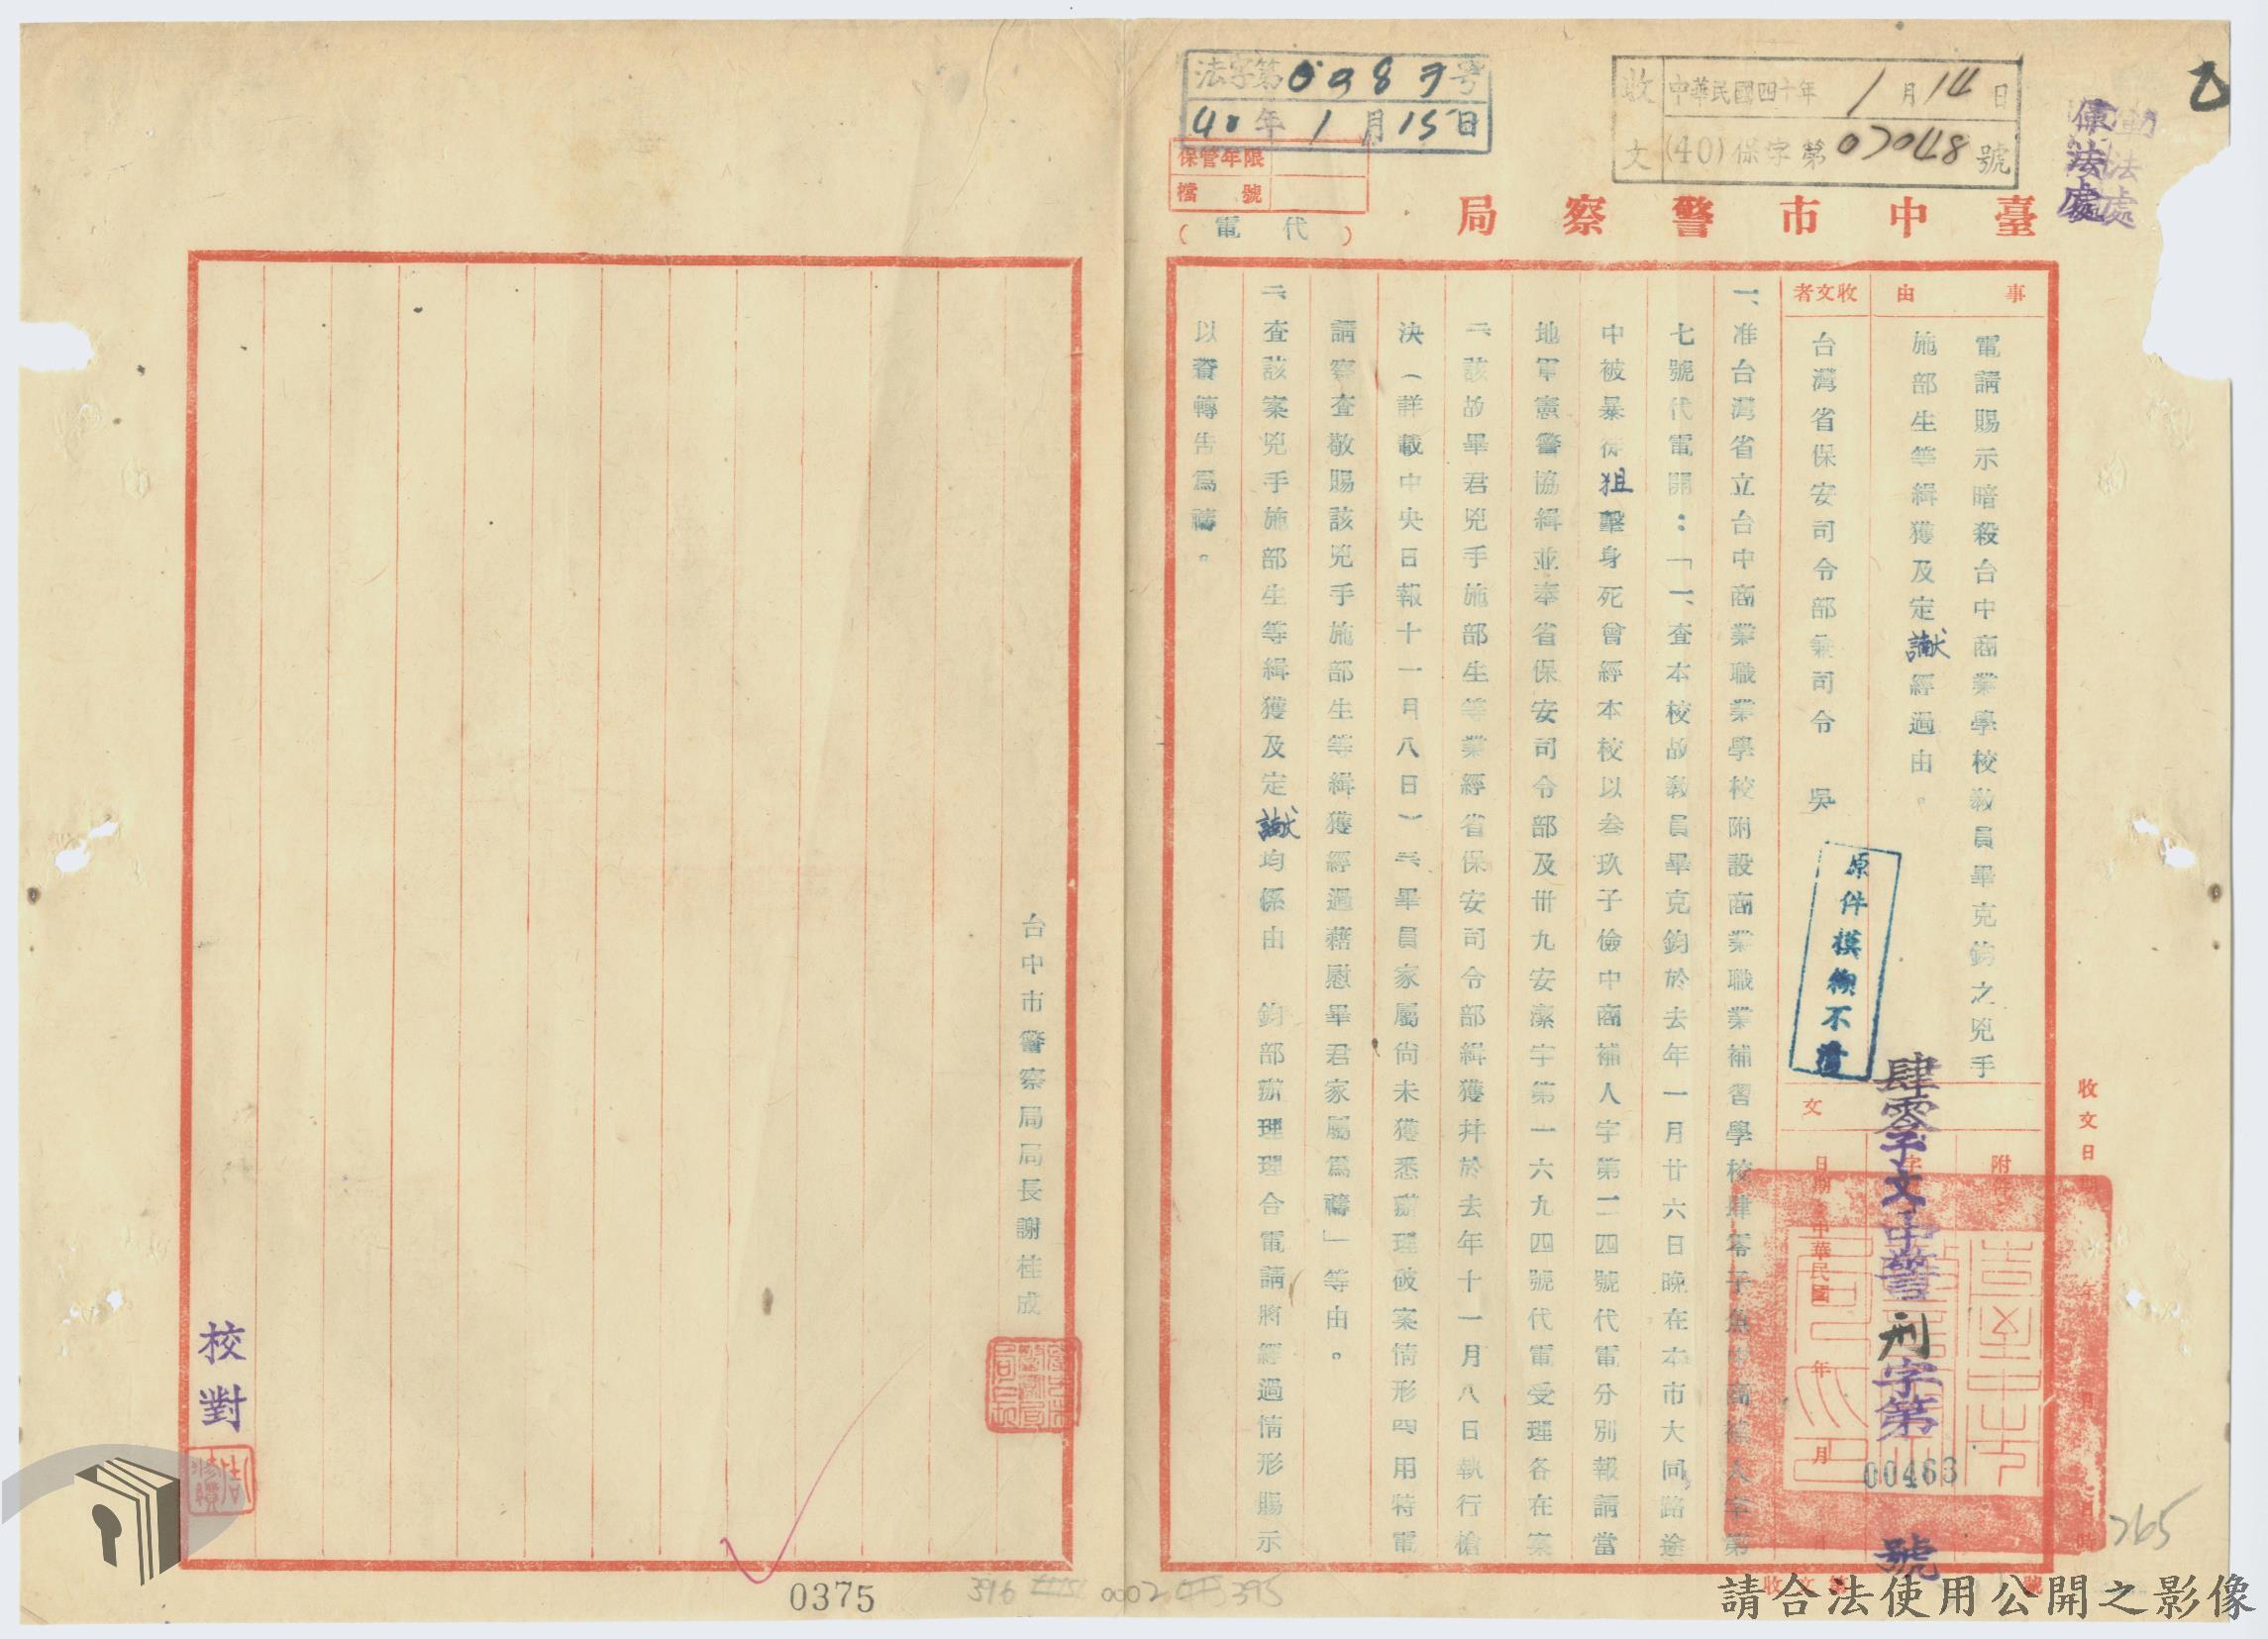 法字第0987号
40年1月15日
保管年限
檔號
收文
中華民國四十年1月14日
(40)保字第07048號
保法處
臺中市警察局
(代電)
事由
電請賜示暗殺台中商業學校教員畢克鈞之兇手
施部生等緝獲及定讞經過由。
收文者
台灣省保安司令部兼司令 吳
原件模糊不清
附
字
文
日期
中華民國 年 月 日
肆零子文中警刑字第00463號
收文日
一、准台灣省立台中商業職業學校附設商業職業補習學校肆零子魚中商補人字第
七號代電開:「一、查本校故教員畢克鈞於去年一月廿六日晚在本市大同路途
中被暴徒狙擊身死曾經本校以叁玖子儉中商補人字第二四號代電分別報請當
地軍憲警協緝並奉省保安司令部及卅九安潔字第一六九四號代電受理各在案
二、該故畢君兇手施部生等業經省保安司令部緝獲并於去年十一月八日執行槍
決(詳載中央日報十一月八日)三、畢員家屬尚未獲悉辦理破案情形四、用特電
請察查敬賜該兇手施部生等緝獲經過藉慰畢君家屬為禱」等由。
二、查該案兇手施部生等緝獲及定讞均係由 鈞部辦理理合電請將經過情形賜示
以資轉告為禱。
台中市警察局局長謝桂成
校對
265
0375
396
0002
395
請合法使用公開之影像